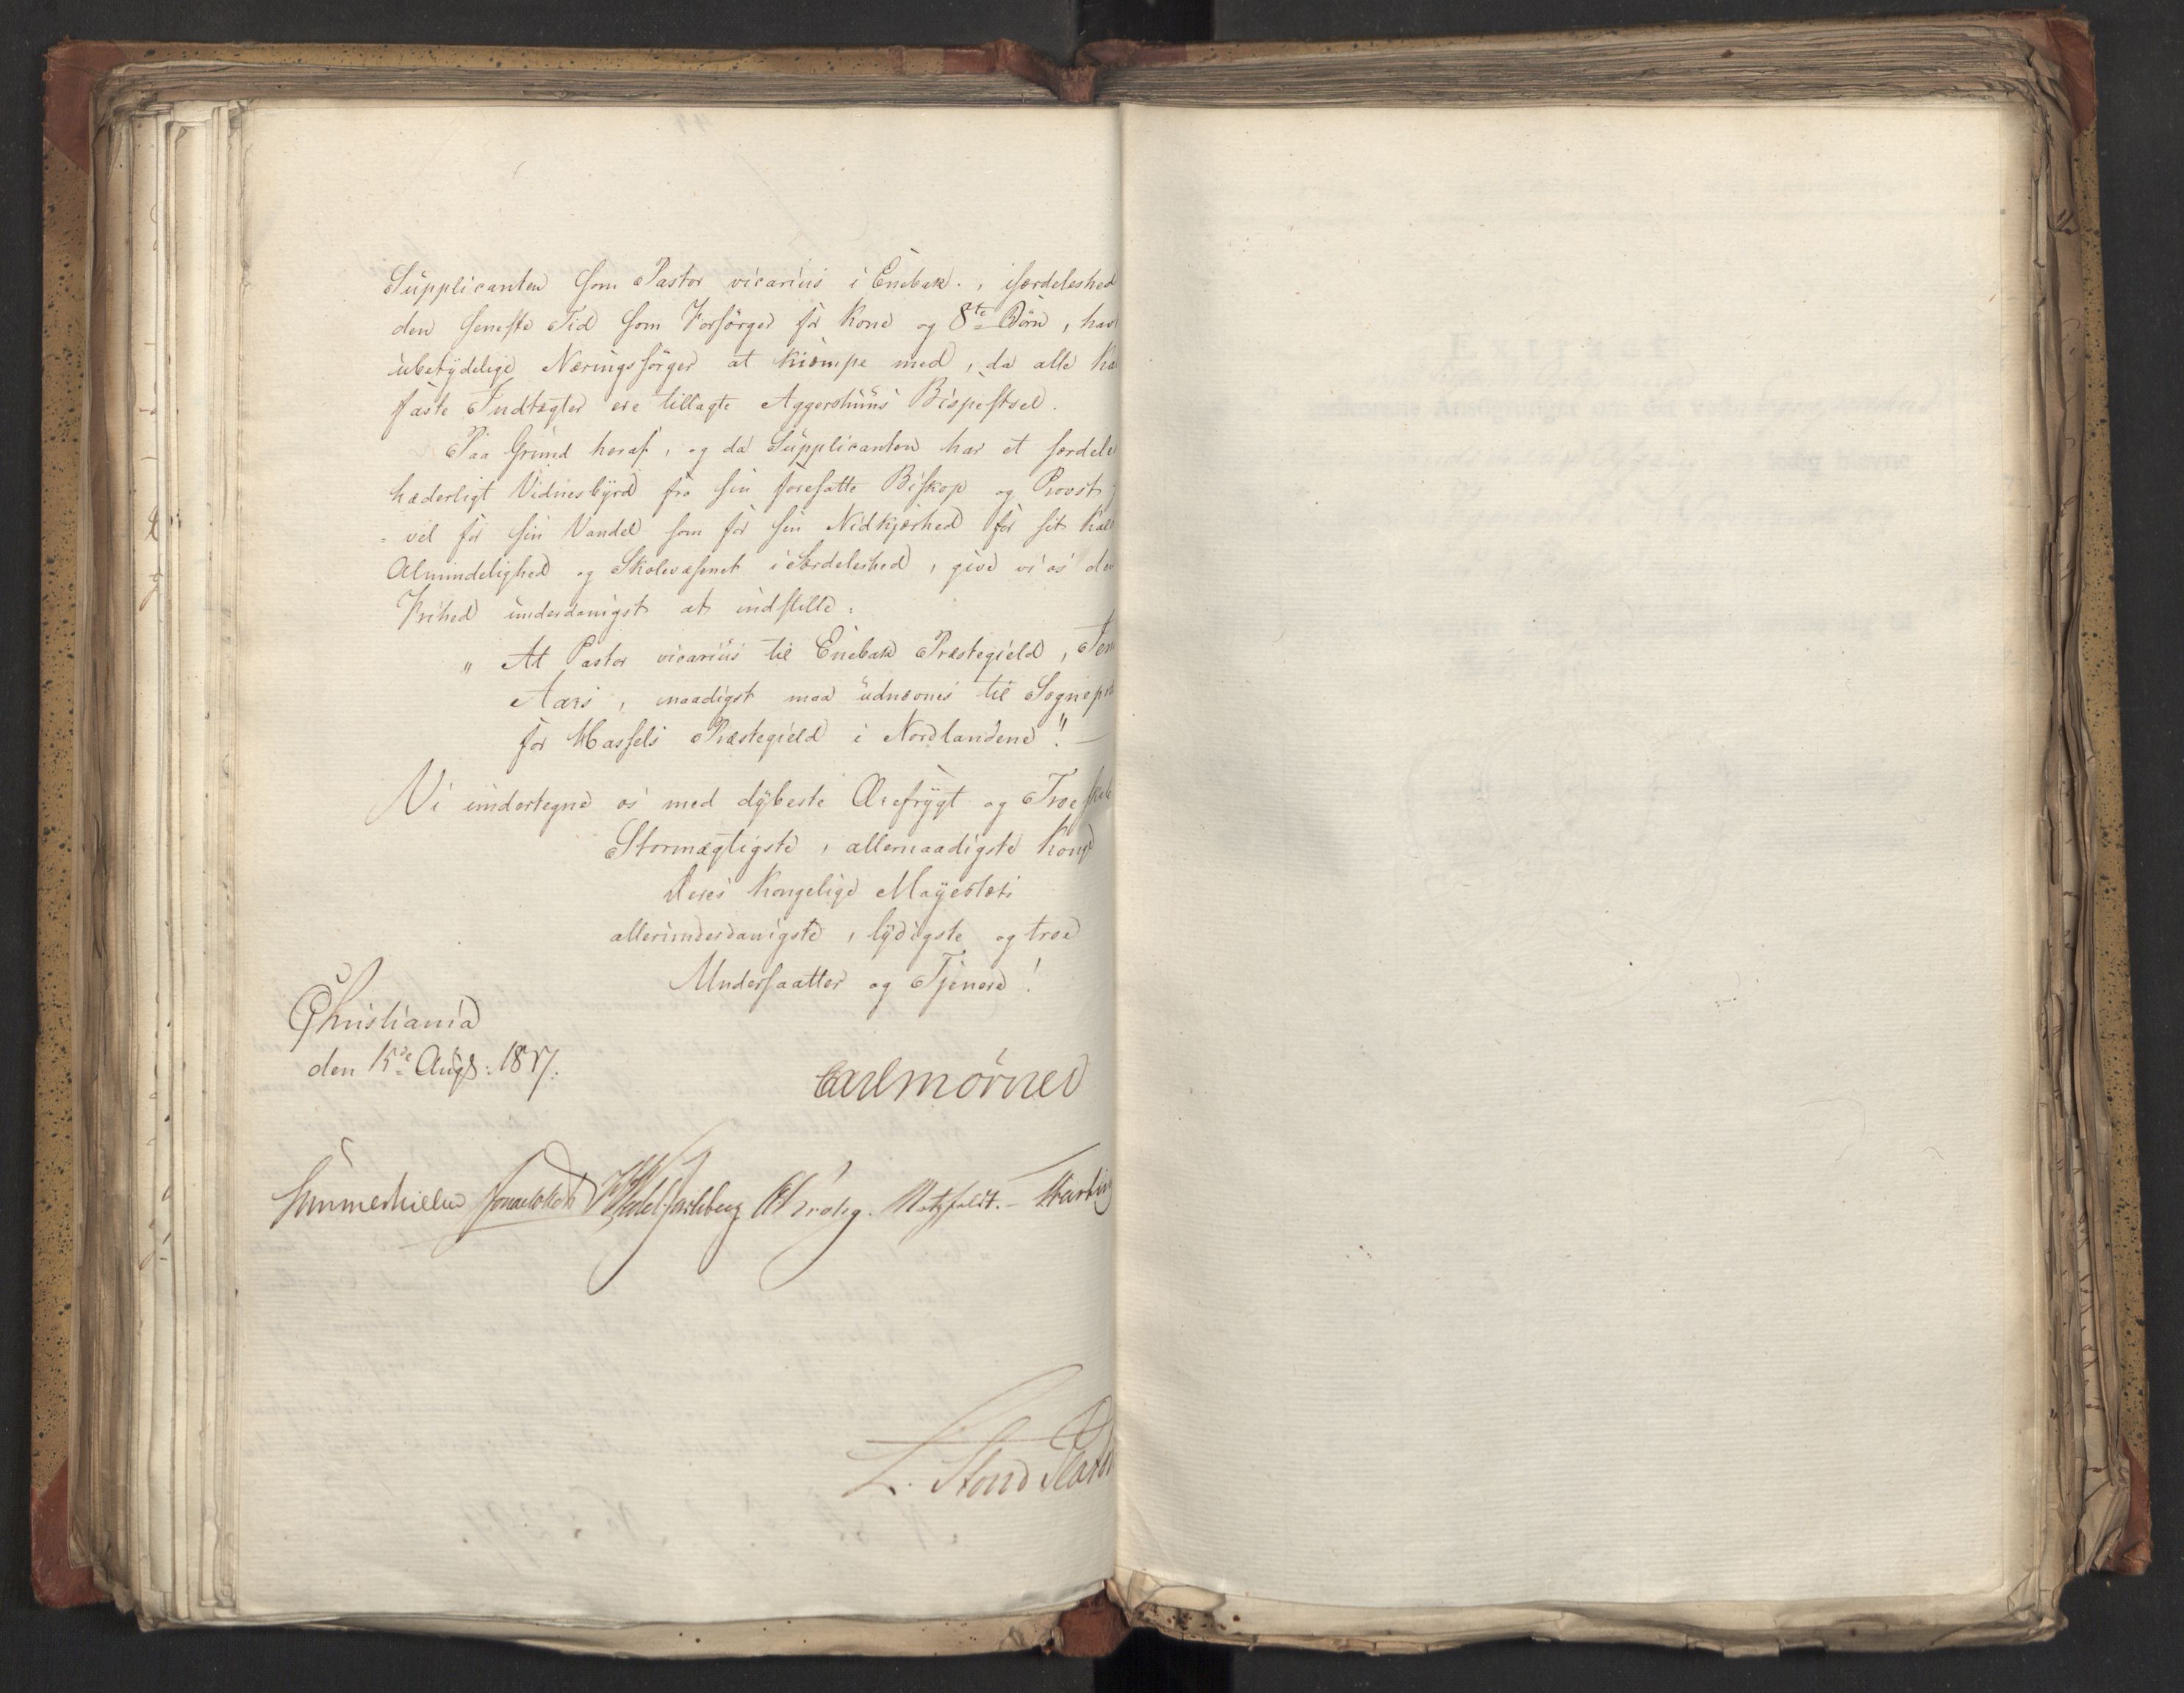 Supplicanten som Pastor vicarius i Enebak, isærdeleshed
den seneste Tid som Forsørger for Kone og 8te Børn, hav
ubetydelige Næringssorger at kiæmpe med, da alle Ka
faste Indtægter ere tillagte Aggershuus Bispestoel.
Paa Grund heraf, og da Supplicanten har et særdeles
hæderligt Vidnesbyrd fra sin foresatte Biskop og Provst
vel for sin Vandel som for sin Nidkjærhed for sit Kald
Almindelighed og Skolevæsenet i Særdeleshed, give vi os den
Frihed underdanigst at indstille:
"At Pastor vicarius til Enebak Præstegield,
Aars, naadigst maa udnævnes til Sognepræ
for Hassels Præstegield i Nordlandene". —
Vi undertegne os med dybeste Ærefrygt og Troeskab
Stormægtigste, allernaadigste Konge
Deres Kongelige Mayestæts
allerunderdanigste, lydigste og troe
Undersaatter og Tjenere!
Christiania
den 15de Augs: 1817.
Carl Mörner
Sommerhielm Jonas Collett HWedel Jarlsberg CKrohg. Motzfeldt. —
L. Stoud Platou